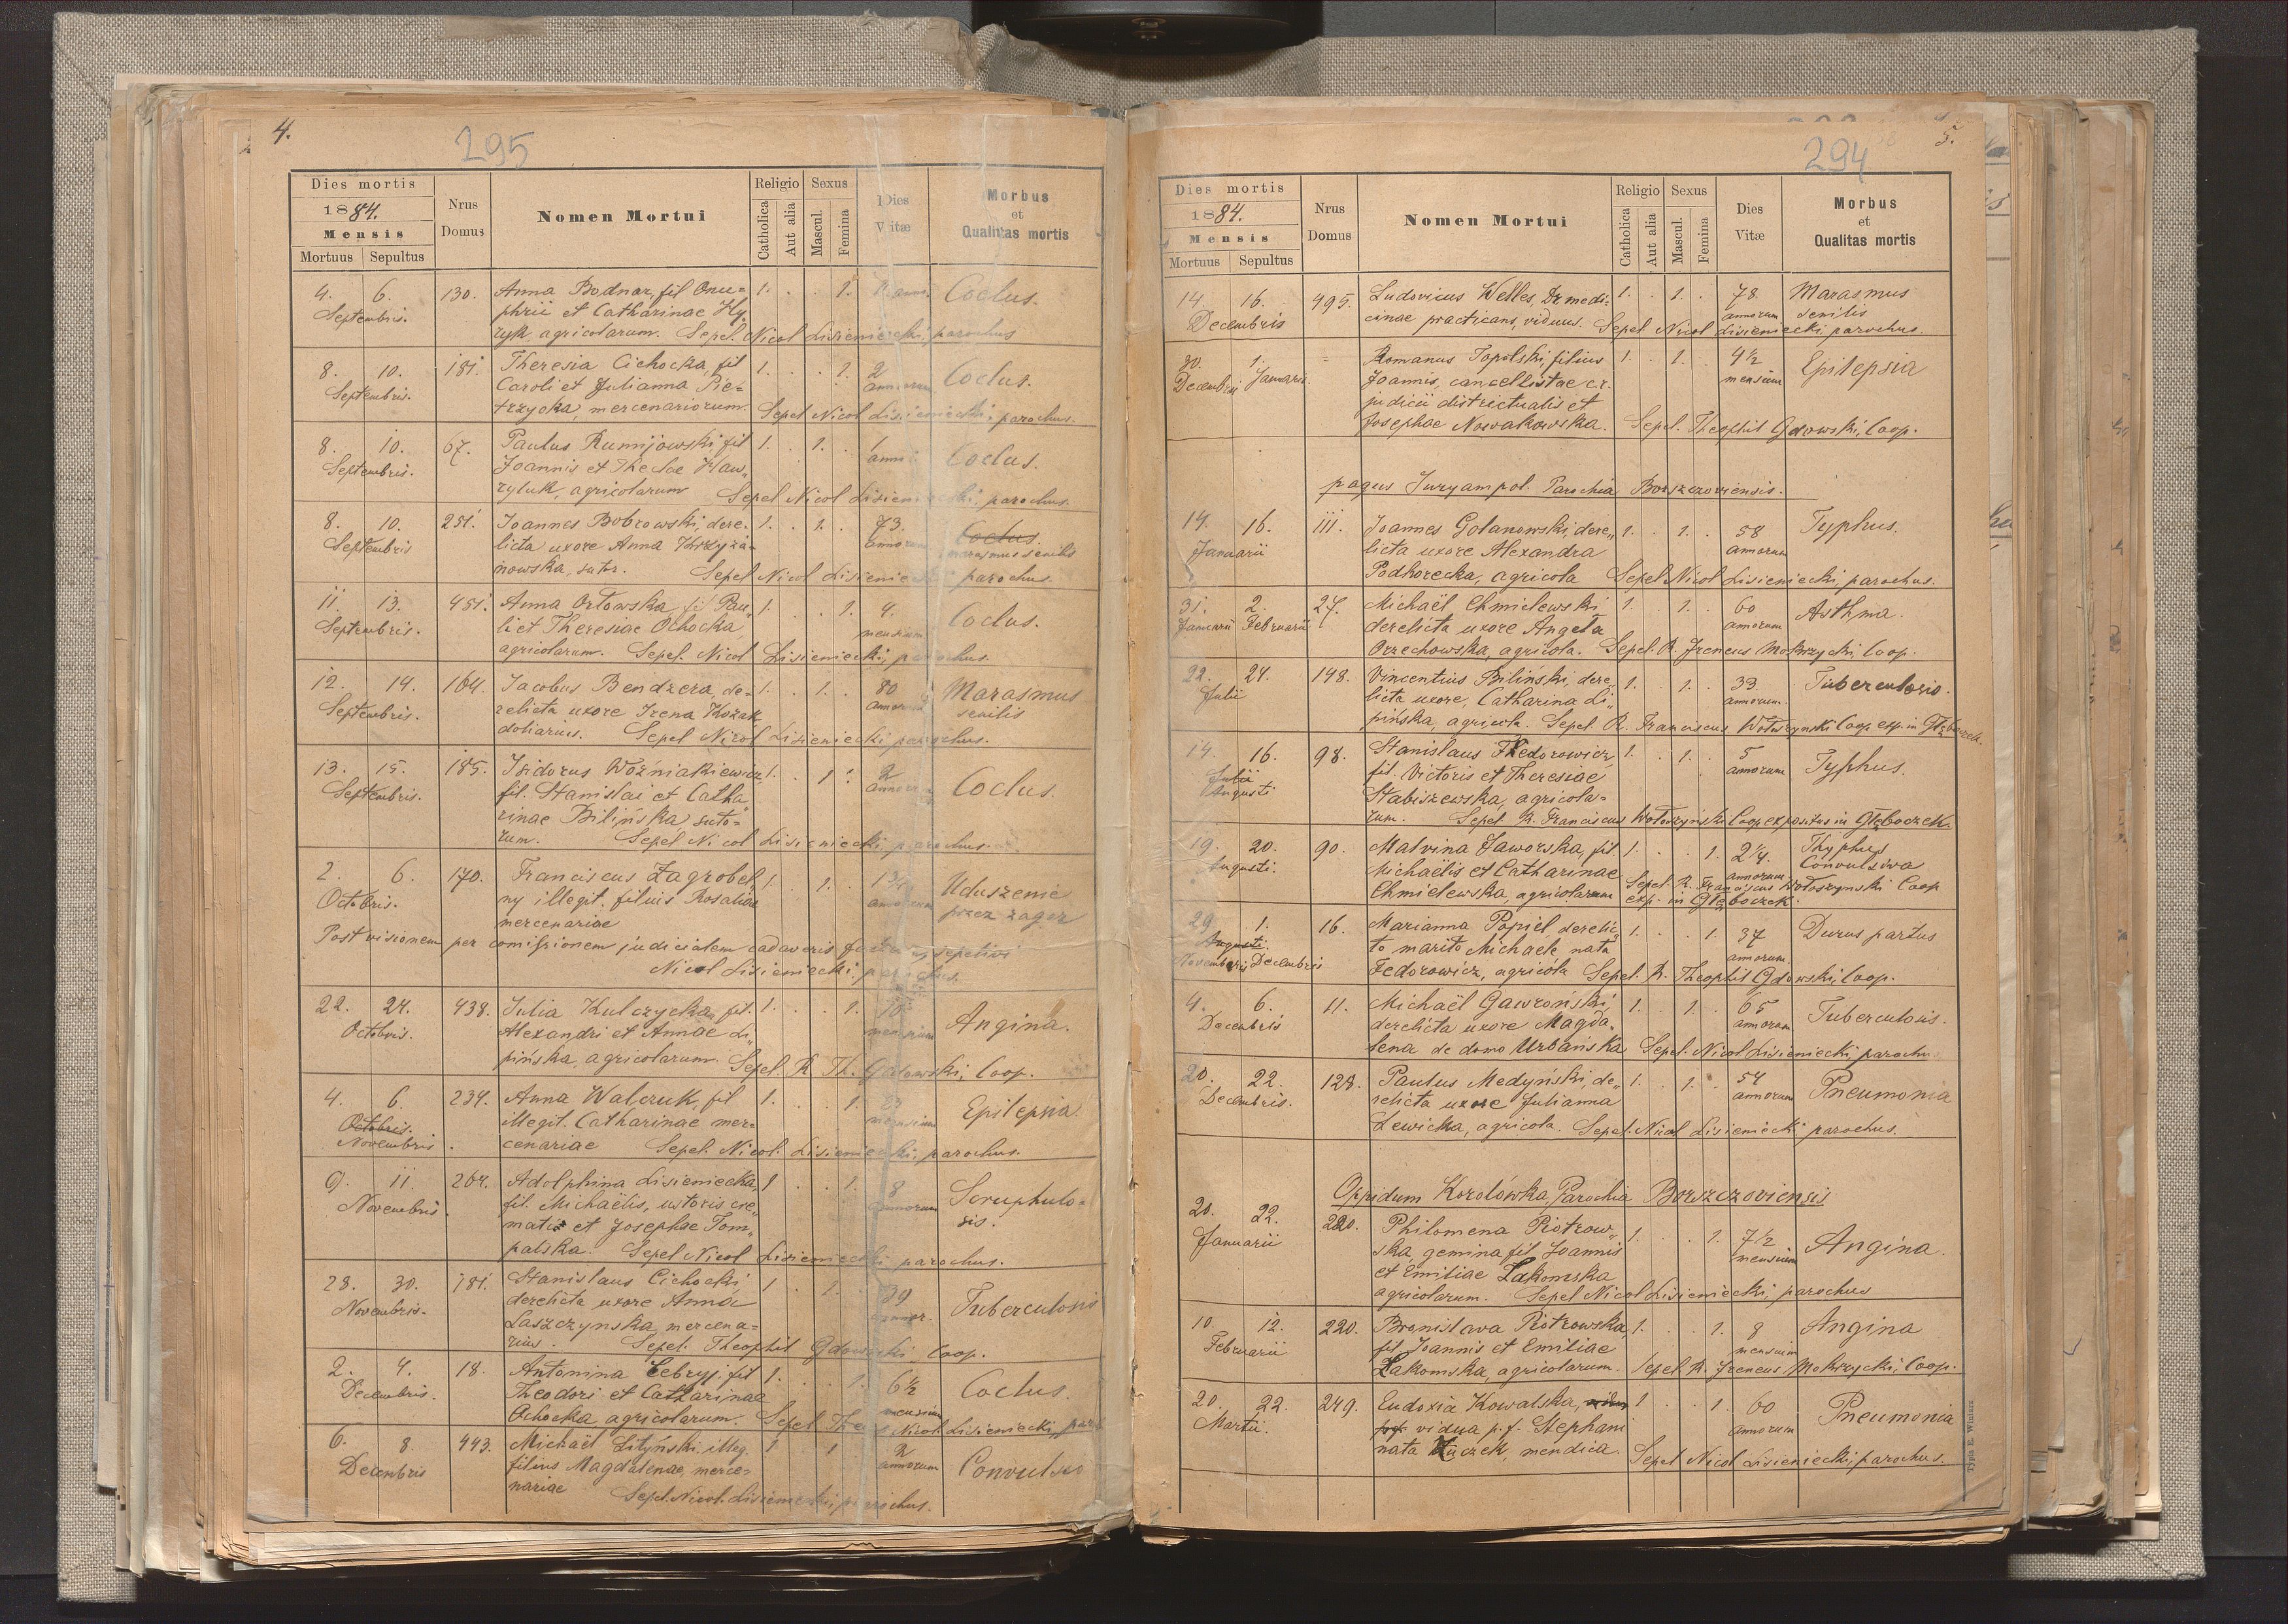 4.
295
Dies mortis
1884.
Mensis
Mortuus Sepultus
Nrus
Domus
Nomen Mortui
Religio
Catholica
Aut alia
Sexus
Mascul.
Femina
Dies
Vitæ
Morbus
et
Qualitas mortis
4. 6. 130. Anna Bodnar, fil Onu= 1. . . 1. Coclus.
Septembris. phrii et Catharinae Hy
ryk, agricolarum. Sepel. Nicol Lisieniecki, parochus
8. 10. 181. Theresia Cichocka, fil 1. . . 1. 2 Coclus.
Septembris. Caroli et Julianna Pie= annorum
trzycka, mercenariorum. Sepel Nicol Lisieniecki, parochus.
8. 10. 67. Paulus Rumijowski fil 1. . 1. . 1 Coclus.
Septembris. Joannis et Theclae Haw= anni
ryluk, agricolarum Sepel Nicol Lisieniecki, parochus.
8. 10. 251. Joannes Bobrowski, dere= 1. . 1. . 73. Coclus.
Septembris licta uxore Anna Krzyża= annorum marasmus senilis
nowska, sutor. Sepel Nicol Lisieniecki parochus.
11. 13. 451. Anna Orłowska fil Pau= 1. . . 1. 4. Coclus.
Septembris. li et Theresiae Ochocka, mensium
agricolarum. Sepel. Nicol Lisieniecki, parochus.
12. 14. 164. Jacobus Bendzera, de= 1. . 1. . 80 Marasmus
Septembris. relicta uxore Irena Kozak annorum senilis
doliarius. Sepel Nicol Lisieniecki parochus.
13. 15. 185. Isidorus Woźniakiewicz 1. . 1 . 2 Coclus.
Septembris. fil. Stanislai et Catha= annorum
rinae Bilińska suto=
rum. Sepel Nicol Lisieniecki parochus.
2. 6. 170. Franciscus Zagrobel= 1. . 1. . Uduszenie
Octobris. ny illegit. filius Rosaliae annorum przez zagor
mercenariae
Post visionem per comissionem judicialem cadaveris sepelivi
Nicol Lisieniecki, parochus.
22. 24. 438. Julia Kulczycka, fil. 1. . . 1. 10 Angina.
Octobris. Alexandri et Annae Li= mensium
pińska, agricolarum. Sepel R Th. Gdowski, Coop.
4. 6. 234. Anna Walczuk, fil 1. . . 1. Epilepsia.
Octobris. illegit. Catharinae mer= mensium
Novembris. cenariae Sepel. Nicol. Lisieniecki, parochus.
9. 11. 264. Adolphina Lisieniecka, 1 . . 1. 8 Scruphulo=
Novembris. fil. Michaëlis, ustoris cre= annorum sis.
mati et Josephae Tom=
palska. Sepel Nicol Lisieniecki parochus.
28. 30. 181. Stanislaus Cichocki 1 . 1. . 39 Tuberculosis
Novembris. derelicta uxore Anna annor.
Laszczynska mercena=
rius. Sepel. Theophil Gdowski Coop.
2. 4. 18. Antonina Cebryj, fil 1. . . 1. 6½ Coclus.
Decembris. Theodori et Catharinae mensium
Ochocka agricolarum. Sepel The Nicol Lisieniecki, par
6. 8. 443. Michaël Lityński illeg. 1 . 1 . 2 Convulsio
Decembris filius Magdalenae, merce= annorum
nariae Sepel. Nicol. Lisieniecki, parochus.
5.
294
Dies mortis
1884.
Mensis
Mortuus Sepultus
Nrus
Domus
Nomen Mortui
Religio
Catholica
Aut alia
Sexus
Mascul.
Femina
Dies
Vitæ
Morbus
et
Qualitas mortis
14. 16. 495. Ludovicus Welles, Dr medi= 1. . 1. . 78. Marasmus
Decembris cinae practicans, viduus. annorum senilis
Sepel Nicol Lisieniecki, parochus.
30. 1. = Romanus Topolski, filius 1. . 1. . 4½ Epilepsia
Decembris Januarii Joannis, cancellistae c.r. mensium
judicii districtualis et
Josephae Nowakowska. Sepel. Theophil Gdowski, Coop.
pagus Juryampol. Parochia Borszczoviensis.
14. 16. 111. Joannes Golanowski, dere= 1. . 1. . 58 Typhus.
Januarii licta uxore Alexandra annorum
Podhorecka, agricola Sepel Nicol Lisieniecki, parochus.
31. 2. 27. Michaël Chmielewski 1. . 1. . 60 Asthma.
Januarii Februarii derelicta uxore Angela annorum
Orzechowska, agricola. Sepel. R. Ireneus Mokrzycki, Coop.
22. 24. 198. Vincentius Biliński, dere= 1. . 1. . 33. Tuberculosis.
Julii licta uxore, Catharina Li= annorum.
pińska, agricola. Sepel. R. Franciscus Wołoszynski Coop. exp. in Głęboczek.
14. 16. 98. Stanislaus Fedorowicz, 1. . 1. . 5 Typhus.
Julii fil. Victoris et Theresiae annorum
Augusti Stabiszewska, agricola=
rum. Sepel R. Franciscus Wołoszyński Coop expositus in Głęboczek.
19. 20. 90. Malvina Jaworska, fil. 1. . . 1. 2¼. Thyphus
Augusti. Michaëlis et Catharinae annorum Convulsiva
Chmielewska, agricolarum Sepel. R. Franciscus Wołoszynski Coop
exp. in Głęboczek.
29. 1. 16. Marianna Popiel derelic= 1. . . 1. 37 Durus partus
Augusti. to marito Michaele nata annorum.
Novembris Decembris Fedorowicz, agricola Sepel. R. Theophil Gdowski, Coop.
4. 6. 11. Michaël Gawroński, 1. . 1. . 65 Tuberculosis.
Decembris derelicta uxore Magda= annorum
lena de domo Urbańska Sepel. Nicol Lisieniecki, parochus
20. 22. 128. Paulus Medyński, de= 1. . 1. . 54 Pneumonia
Decembris. relicta uxore Julianna annorum
Lewicka, agricola. Sepel. Nicol Lisieniecki parochus.
Oppidum Korolówka, Parochia Borszczoviensis
20. 22. 220. Philomena Piotrow= 1. . . 1. 7½ Angina.
Januarii ska gemina fil Joannis mensium
et Emiliae Zakomska
agricolarum. Sepel Nicol Lisieniecki, parochus
10. 12. 220. Bronislava Piotrowska 1. . . 1. 8 Angina
Februarii fil Joannis et Emiliae mensium
Zakomska, agricolarum. Sepel R. Ireneus Mokrzycki, Coop.
20. 22. 249. Eudoxia Kowalska, 1 . . 1. 60 Pneumonia
Martii. vidua p.f. Stephani annorum
nata Kuczek, mendica. Sepel Nicol Lisieniecki, parochus.
Typis E. Winiarz